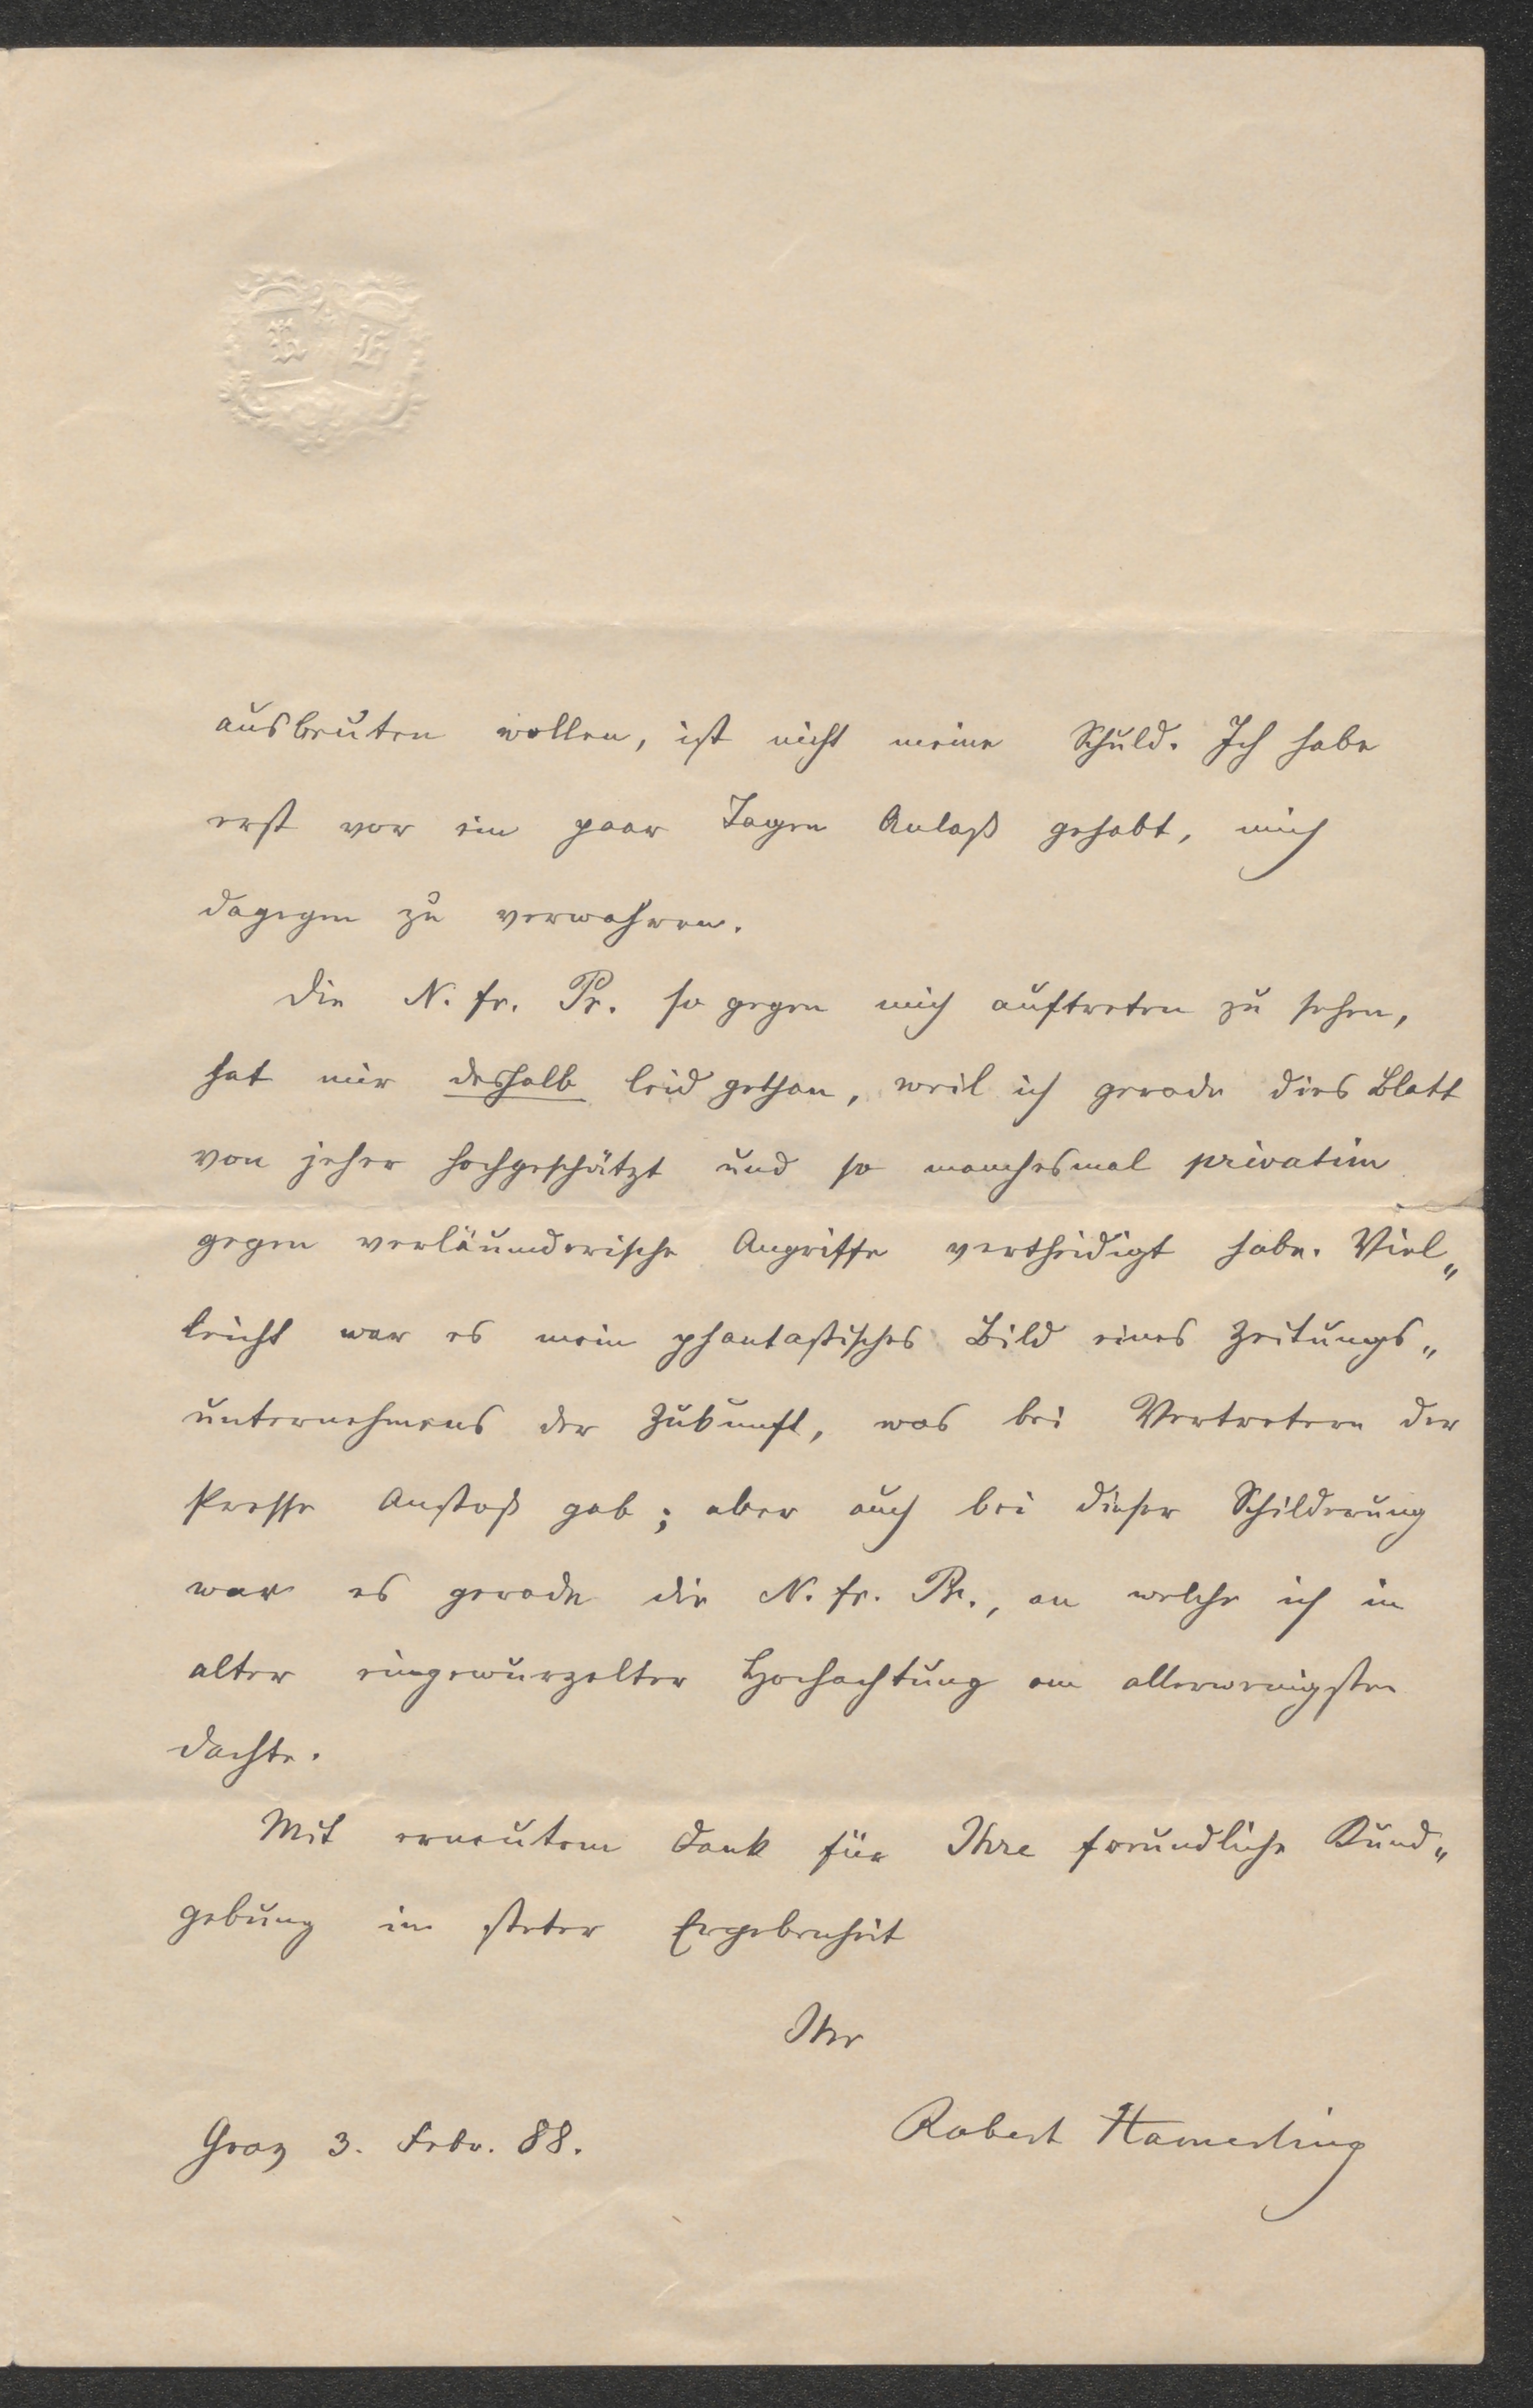 R H
ausbeuten wollen, ist nicht meine Schuld. Ich habe
erst vor ein paar Tagen Anlaß gehabt, mich
dagegen zu verwahren.
Die N. fr. Pr. so gegen mich auftreten zu sehen,
hat mir deshalb leid gethan, weil ich gerade dies Blatt
von jeher hochgeschätzt und so manchesmal privatim
gegen verläumderische Angriffe vertheidigt habe. Viel„
leicht war es mein phantastisches Bild eines Zeitungs„
unternehmens der Zukunft, was bei Vertretern der
Presse Anstoß gab; aber auch bei dieser Schilderung
war es gerade die N. fr. Pr., an welche ich in
alter eingewurzelter Hochachtung am allerwenigsten
dachte.
Mit erneutem Dank für Ihre freundliche Kund„
gebung in steter Ergebenheit
Ihr
Robert Hamerling
Graz 3. Febr. 88.